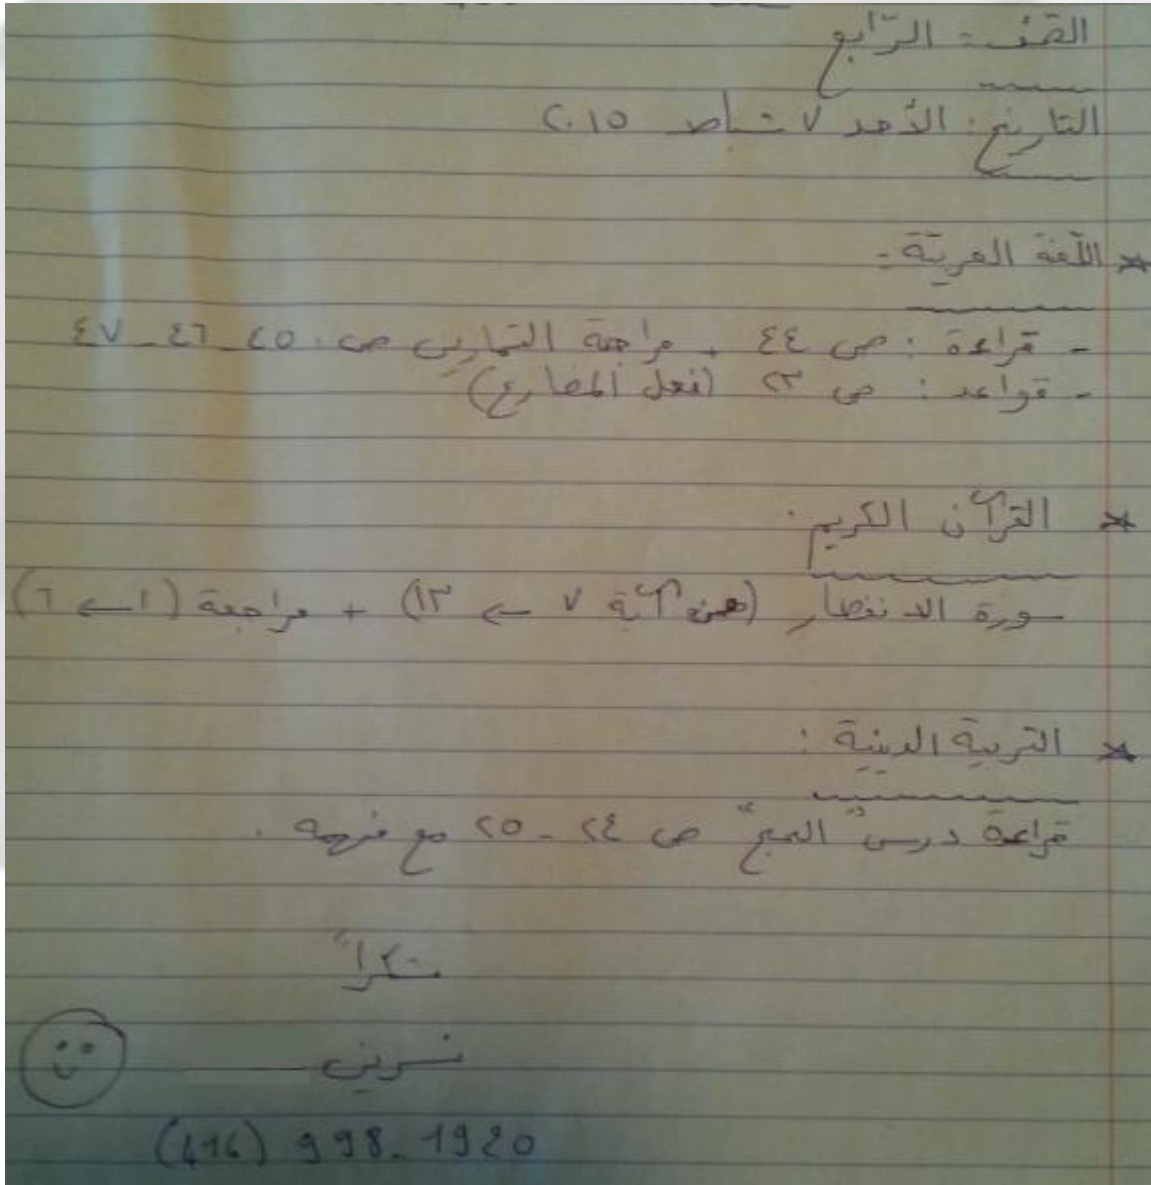 الصّف: الرّابع
التاريخ: الأحد ٧ شباط ٢٠١٥
* اللّغة العربيّة:
- قراءة: ص ٤٤ + مراجعة التمارين ص. ٤٥-٤٦-٤٧
- قواعد: ص ٢٣ (فعل المضارع)
* القرآن الكريم:
سورة الانفطار (من آية ٧ ← ١٣) + مراجعة (١ ← ٦)
* التربية الدينية:
قراءة درس "الحج" ص ٢٤-٢٥ مع فهمه.
شكراً
نسرين
(416) 998-1920